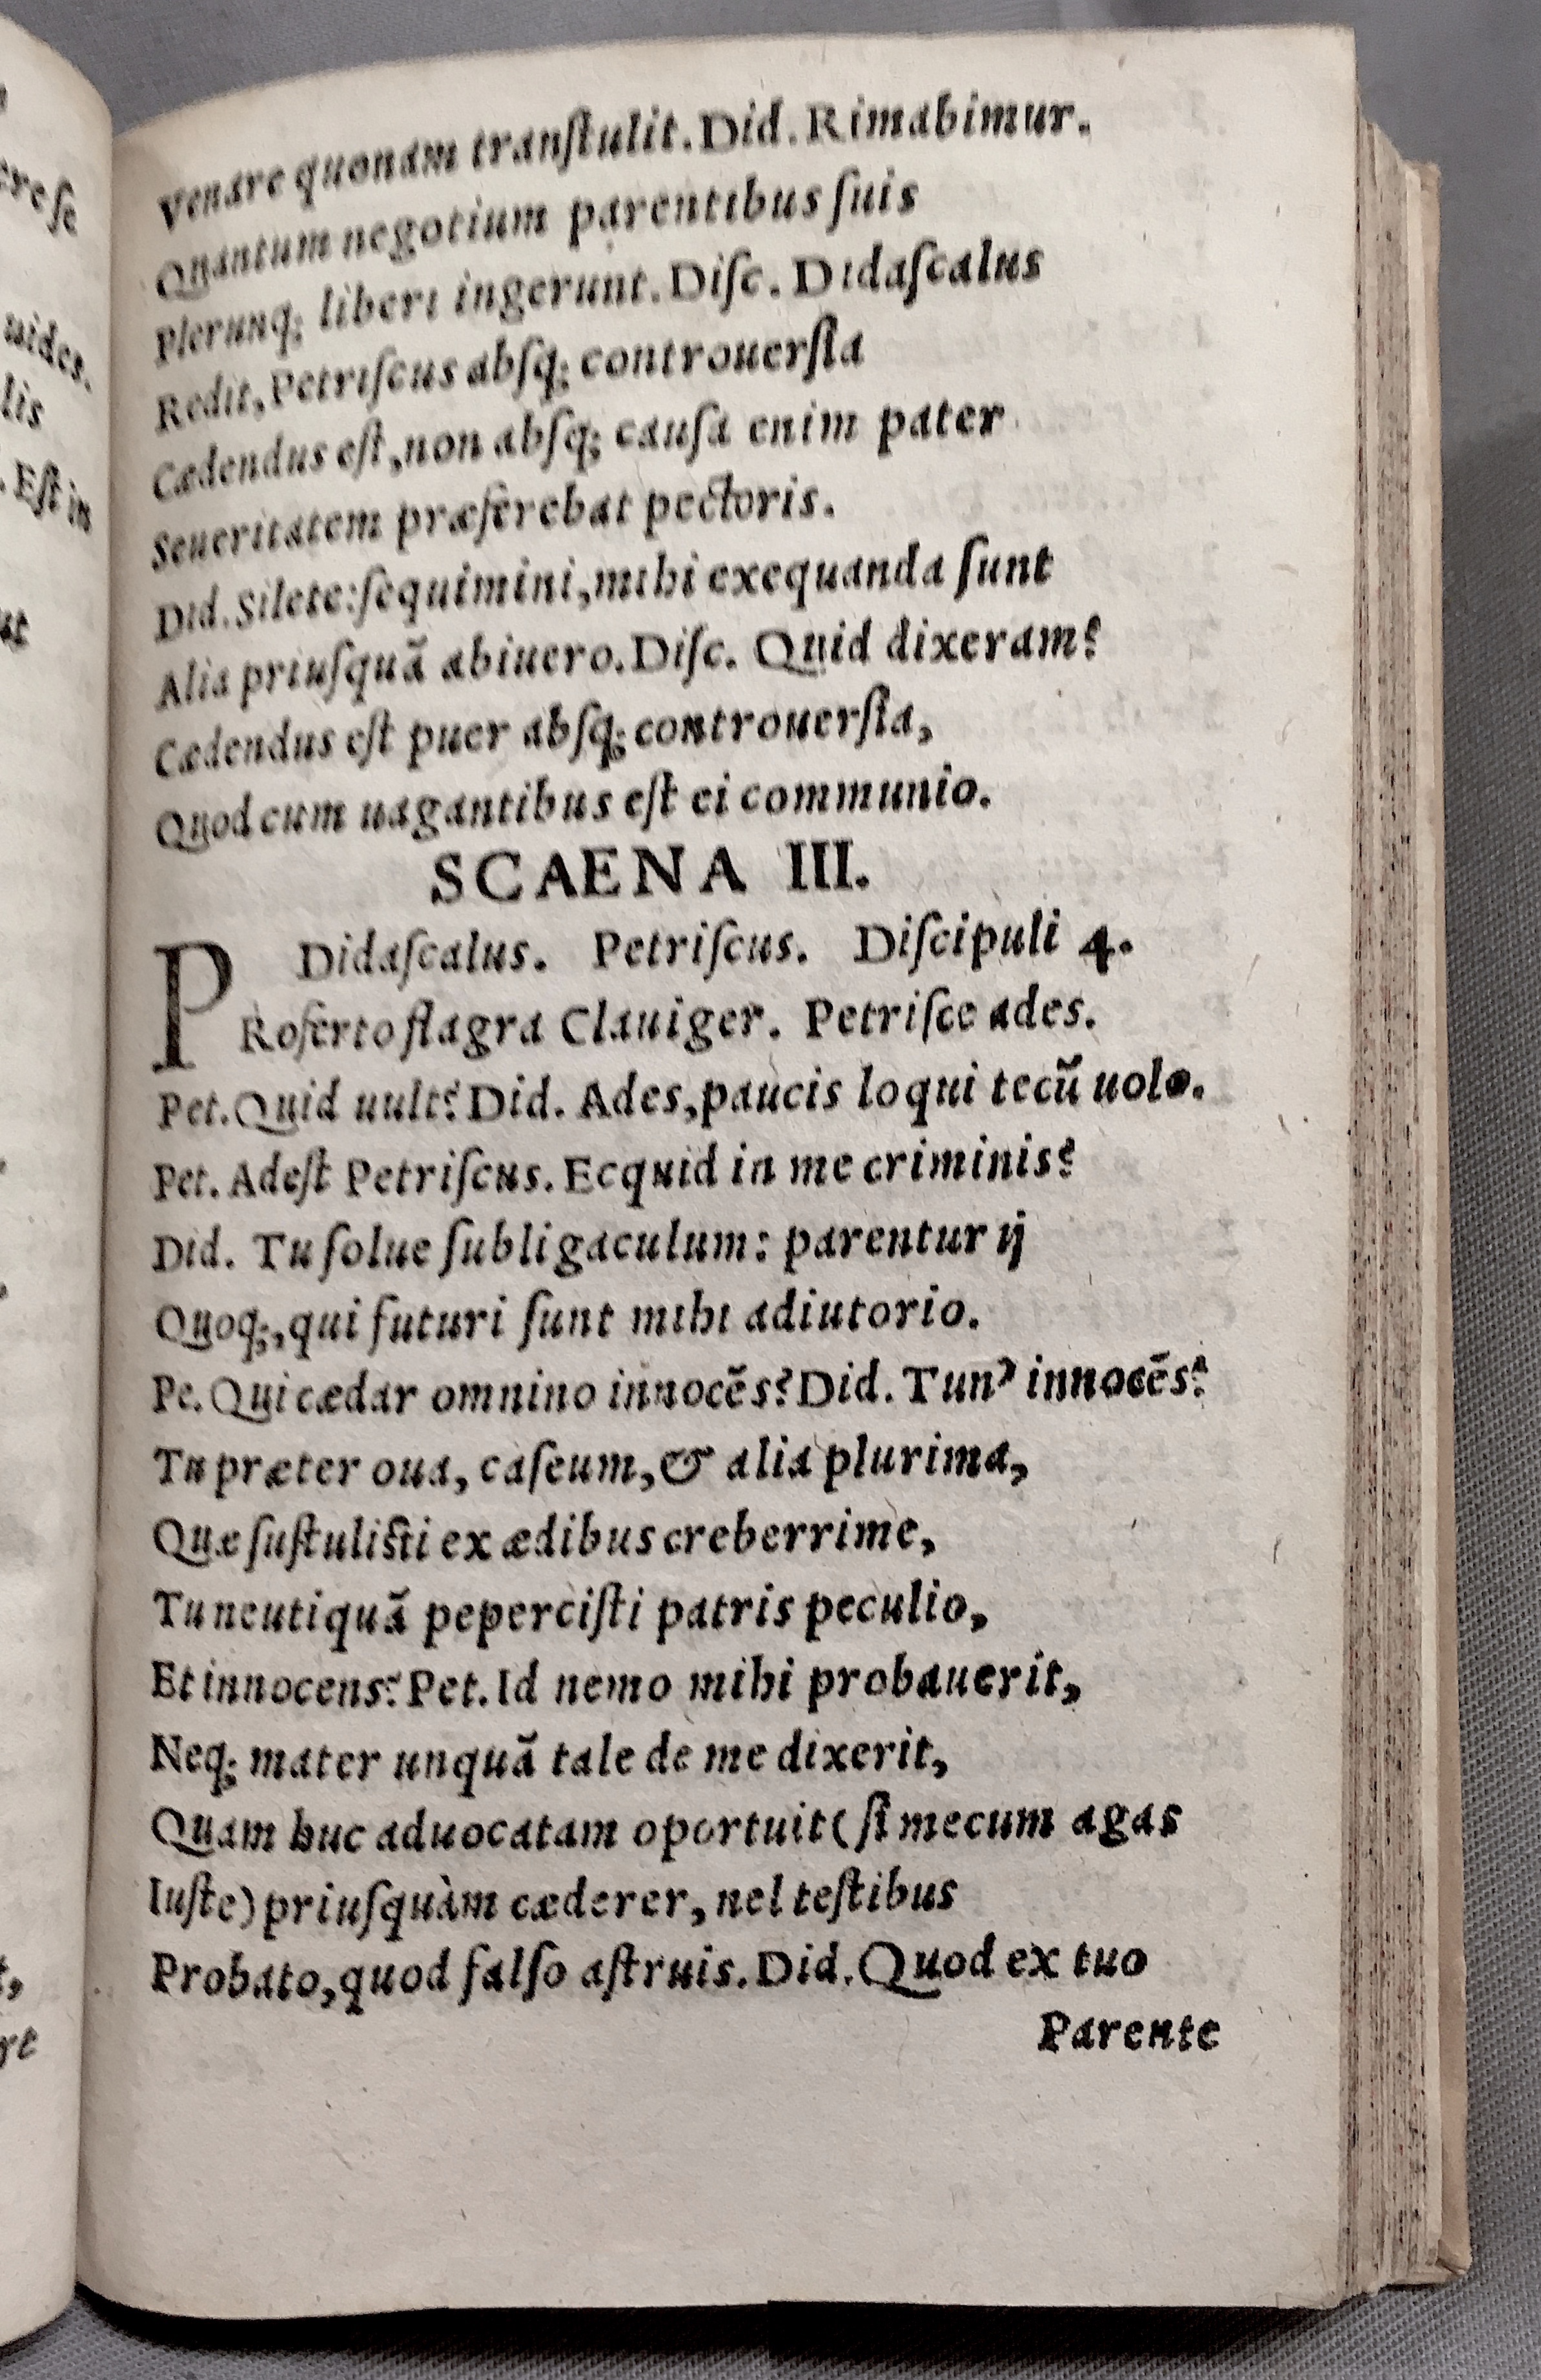 ere ſe
uides.
lis
. Eſt in
ut
t,
re
Venare quonam tranſtulit. Did. Rimabimur.
Quantum negotium parentibus ſuis
Plerunq; liberi ingerunt. Diſc. Didaſcalus
Redit, Petriſcus abſq; controuerſia
Cædendus eſt, non abſq; cauſa enim pater
Seueritatem præferebat pectoris.
Did. Silete: ſequimini, mihi exequanda ſunt
Alia priuſquã abiuero. Diſc. Quid dixeram?
Cædendus eſt puer abſq; controuerſia,
Quod cum uagantibus eſt ei communio.
SCAENA III.
Didaſcalus. Petriſcus. Diſcipuli 4.
PRoferto flagra Clauiger. Petriſce ades.
Pet. Quid uult? Did. Ades, paucis loqui tecũ uolo.
Pet. Adeſt Petriſcus. Ecquid in me criminis?
Did. Tu ſolue ſubligaculum: parentur ij
Quoq;, qui futuri ſunt mihi adiutorio.
Pe. Qui cædar omnino innocẽs? Did. Tun' innocẽs?
Tu præter oua, caſeum, & alia plurima,
Quæ ſuſtuliſti ex ædibus creberrime,
Tu neutiquã peperciſti patris peculio,
Et innocens? Pet. Id nemo mihi probauerit,
Neq; mater unquã tale de me dixerit,
Quam huc aduocatam oportuit (ſi mecum agas
Iuſte) priuſquàm cæderer, nel teſtibus
Probato, quod falſo aſtruis. Did. Quod ex tuo
Parente